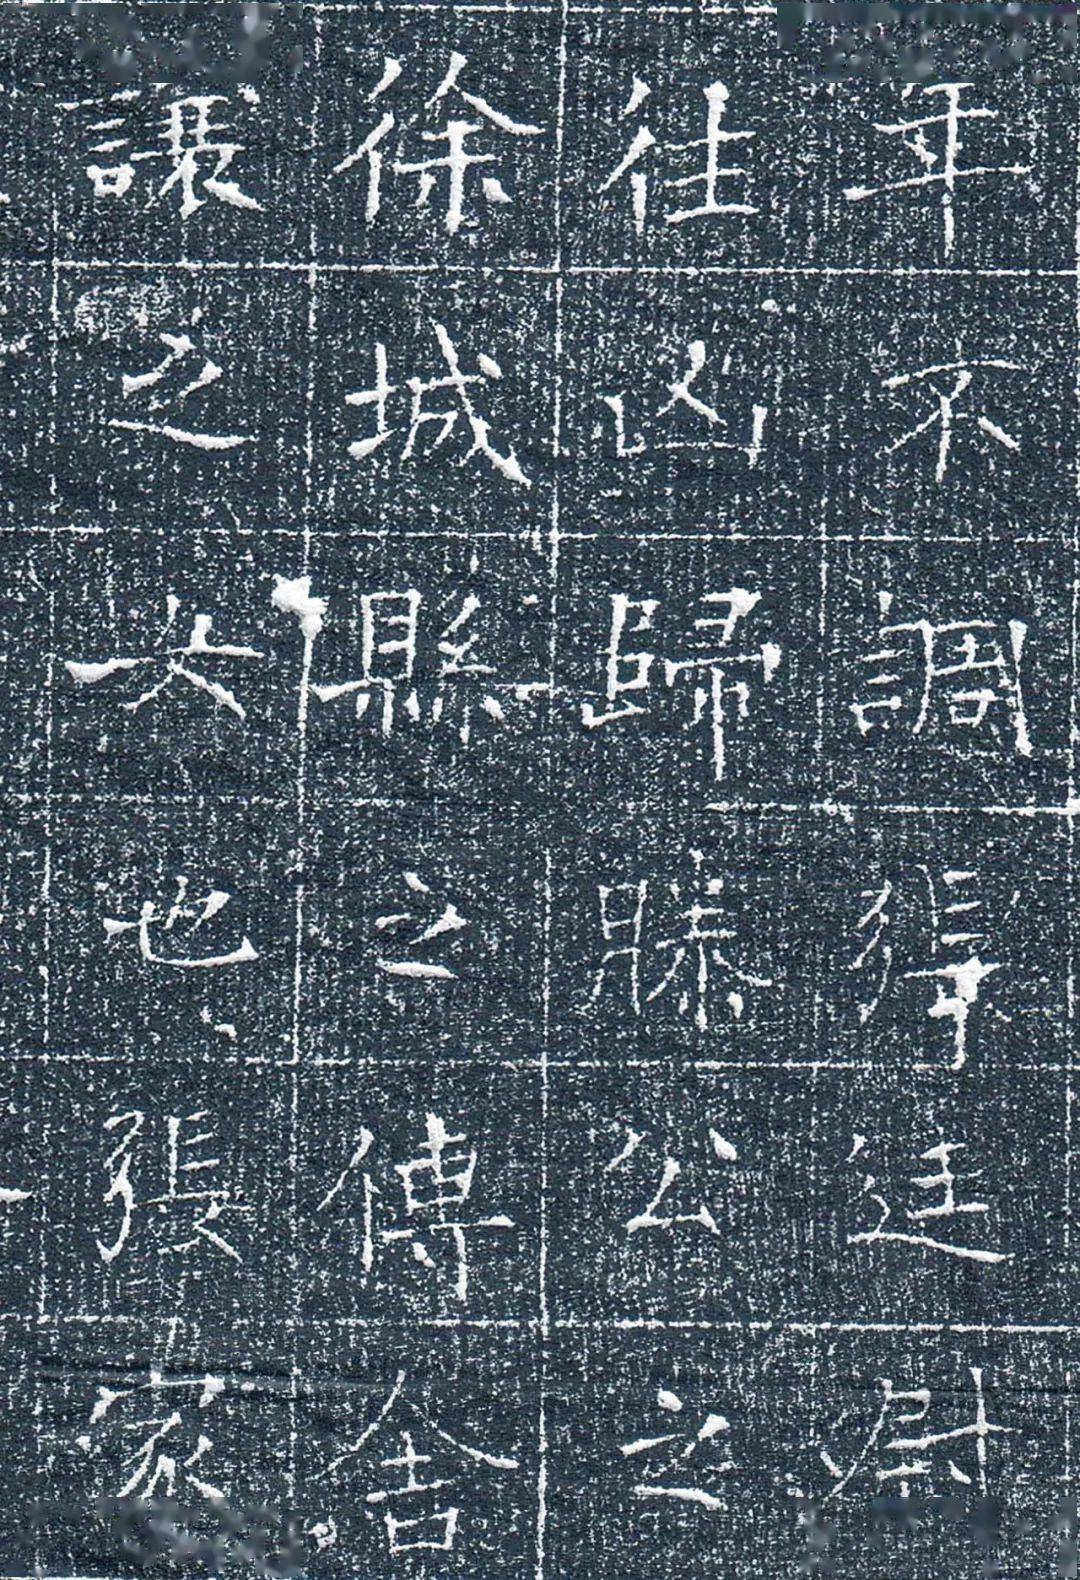 年不調張廷尉
往凶歸滕公之
徐城縣之傳舍
讓之女也張家